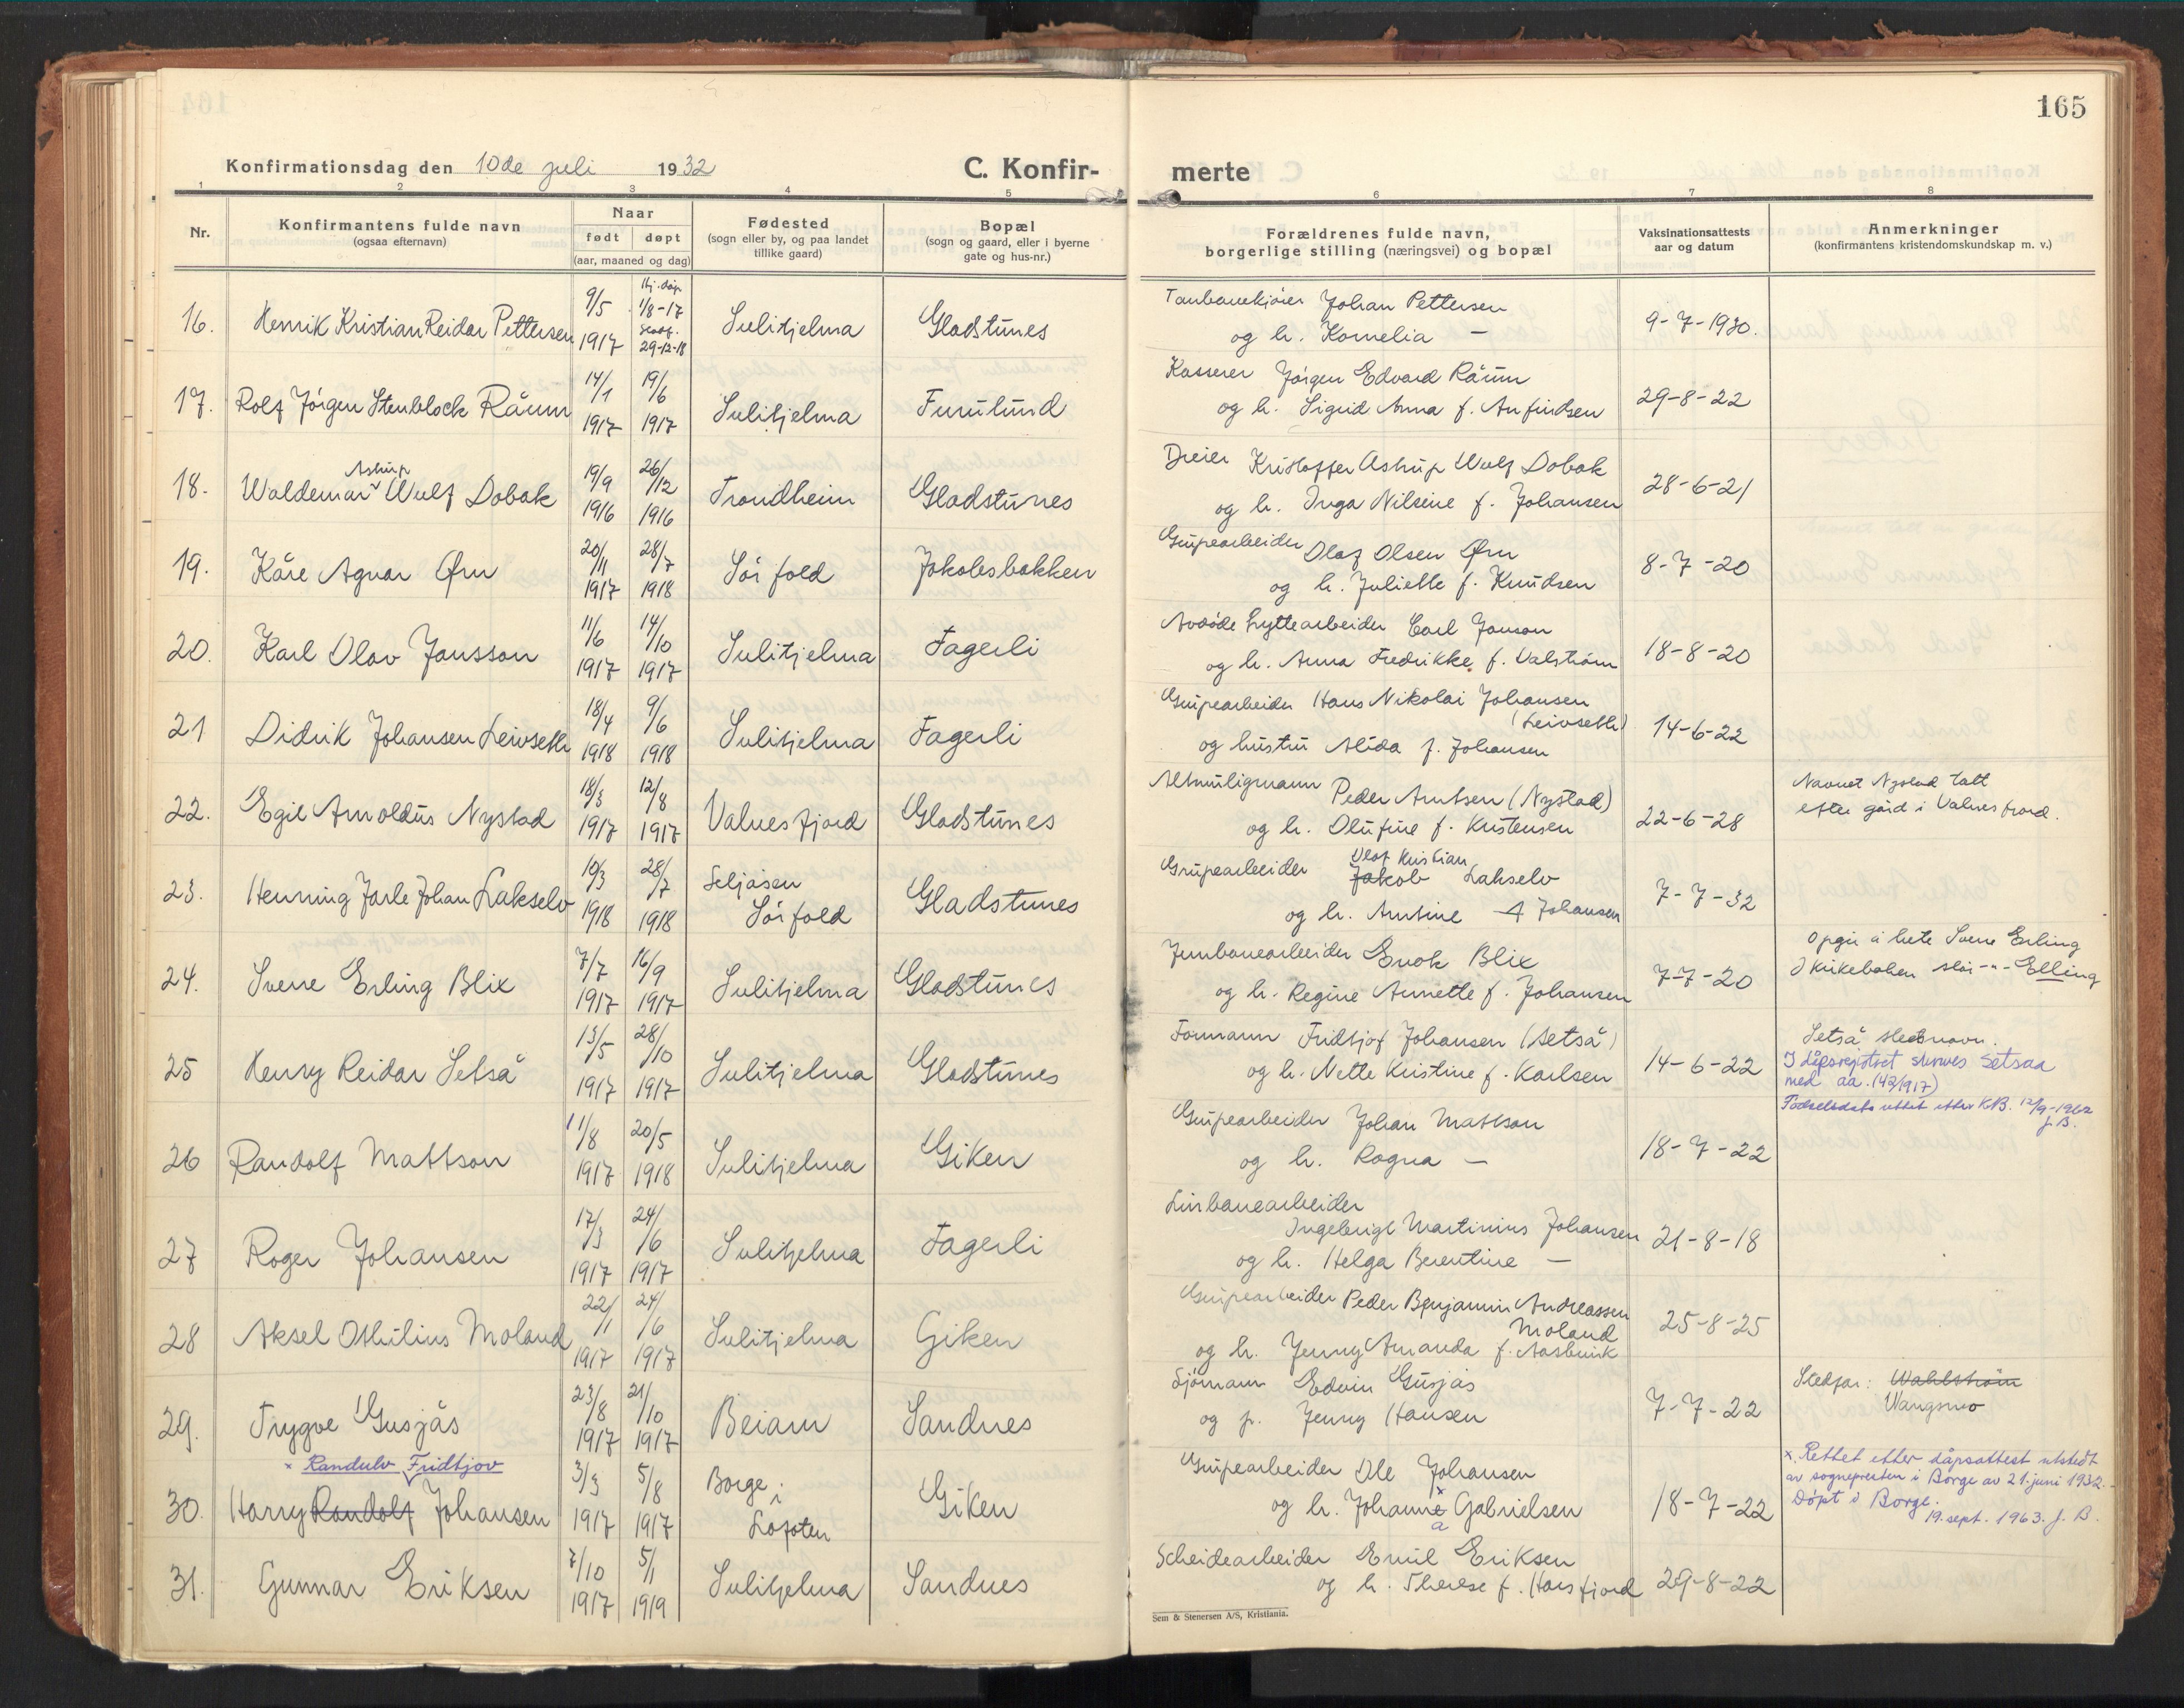 165
Konfirmationsdag den 10de juli 1932
C. Konfirmerte
1 2 3 4 5 6 7 8
Nr.
Konfirmantens fulde navn
(ogsaa efternavn)
Naar
født døpt
(aar, maaned og dag)
Fødested
(sogn eller by, og paa landet
tillike gaard)
Bopæl
(sogn og gaard, eller i byerne
gate og hus-nr.)
Forældrenes fulde navn,
borgerlige stilling (næringsvei) og bopæl
Vaksinationsattests
aar og datum
Anmerkninger
(konfirmantens kristendomskundskap m. v.)
16. Henrik Kristian Reidar Pettersen 9/5 1917 Hj. døp 1/8-17 Stadf. 29-12-18 Sulitjelma Gladstunes
Taubanekjører Johan Pettersen
og h. Kornelia — 9-7-1930.
17. Rolf Jörgen Stenblock Råum 14/1 1917 19/6 1917 Sulitjelma Furulund
Kasserer Jörgen Edvard Råum
og h. Sigrid Anna f. Anfindsen 29-8-22
18. Waldemar Astrup Wulf Dobak 19/9 1916 26/12 1916 Trondheim Gladstunes
Dreier Kristoffer Astrup Wulf Dobak
og h. Inga Nilsine f. Johansen 28-6-21
19. Kåre Agnar Ørn 20/11 1917 28/7 1918 Sörfold Jakobsbakken
Grupearbeider Olaf Olsen Ørn
og h. Juliette f. Knudsen 8-7-20
20. Karl Olav Jansson 11/6 1917 14/10 1917 Sulitjelma Fagerli
Avdöde hyttearbeider Carl Janson
og h. Anna Fredrikke f. Valström 18-8-20
21 Didrik Johansen Leivseth 18/4 1918 9/6 1918 Sulitjelma Fagerli
Grupearbeider Hans Nikolai Johansen
(Leivseth)
og hustru Alida f. Johansen 14-6-22
22. Egil Arnoldus Nystad 18/3 1917 12/8 1917 Valnesfjord Gladstunes
Altmuligmann Peder Arntsen (Nystad)
og h. Olufine f. Kristensen 22-6-28
Navnet Nystad tatt
efter gård i Valnesfjord.
23. Henning Jarle Johan Lakselv 10/3 1918 28/7 1918 Seljåsen Sörfold Gladstunes
Grupearbeider Olaf Kristian Jakob Lakselv
og h. Antine f Johansen 7-7-32
24. Sverre Erling Blix 7/7 1917 16/9 1917 Sulitjelma Gladstunes
Jernbanearbeider Enok Blix
og h. Regine Annette f. Johansen 7-7-20
Opgir å hete Sverre Erling
I kirkeboken står -"- Elling
25 Henry Reidar Setså 13/5 1917 28/10 1917 Sulitjelma Gladstunes
Formann Fridtjof Johansen (Setså)
og h. Nette Kristine f. Karlsen 14-6-22
Setså stedsnavn.
I dåpsregistret skrives Setsaa
med aa. (42/1917)
Fødselsdato rettet etter KB. 12/9-1962
J.B.
26 Randolf Mattson 11/8 1917 20/5 1918 Sulitjelma Giken
Grupearbeider Johan Mattson
og h. Ragna — 18-7-22
27 Roger Johansen 17/3 1917 24/6 1917 Sulitjelma Fagerli
Linbanearbeider
Ingebrigt Martinius Johansen
og h. Helga Berentine — 21-8-18
28 Aksel Othilius Moland 22/1 1917 24/6 1917 Sulitjelma Giken
Grupearbeider Peder Benjamin Andreassen
Moland
og h. Jenny Amanda f. Aasbunk 25-8-25
29. Trygve Gusjås 23/8 1917 21/10 1917 Beiarn Sandnes
Sjömann Edvin Gusjås
og p. Jenny Hansen 7-7-22
Stedfar: Wahlström
Vangsmo
× Randulv Fridtjov
30. Harry Randolf Johansen 3/3 1917 5/8 1917 Borge i Lofoten Giken
Grupearbeider Ole Johansen
og h. Johanne× a Gabrielsen 18-7-22
×. Rettet etter dåpsattest utstedt
av sogneprest­en i Borge av 21. juni 1932.
Döpt i Borge.
19. sept. 1963. J. B.
31. Gunnar Eriksen 7/10 1917 5/1 1919 Sulitjelma Sandnes
Scheidearbeider Emil Eriksen
og h. Therese f. Horsfjord 29-8-22
Sem & Stenersen A/S, Kristiania.